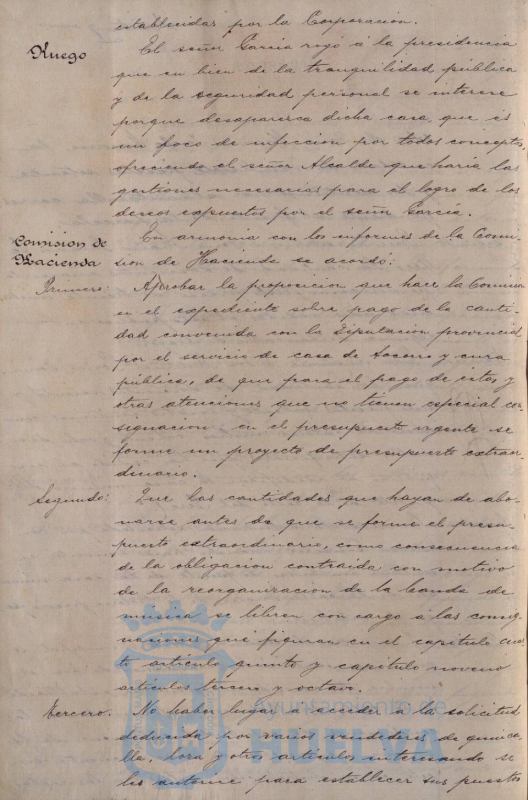 establecidas por la Corporación.
Ruego
El señor García rogó á la presidencia
que en bien de la tranquilidad pública
y de la seguridad personal se interese
porque desaparezca dicha casa, que es
un foco de infeccion por todos conceptos,
ofreciendo el señor Alcalde que haría las
gestiones necesarias para el logro de los
deseos expuestos por el señor García.
Comision de
Hacienda
En armonia con los informes de la Comi-
sion de Hacienda se acordó:
Primero: Aprobar la proposicion que hace la Comision
en el expediente sobre pago de la canti-
dad convenida con la Diputacion provincial
por el servicio de casa de socorro y cura
pública, de que para el pago de éstas y
otras atenciones que no tienen especial con-
signacion en el presupuesto vigente se
forme un proyecto de presupuesto extraor-
dinario.
Segundo: Que las cantidades que hayan de abo-
narse antes de que se forme el presu-
puesto extraordinario, como consecuencia
de la obligacion contraida con motivo
de la reorganizacion de la banda de
música se libren con cargo á las consig-
naciones que figuran en el capitulo cuar-
to artículo quinto y capitulo noveno
artículos tercero y octavo.
Tercero. No haber lugar á acceder á la solicitud
deducida por varios vendedores de quinca-
lla, loza y otros articulos interesando se
les autorice para establecer sus puestos
Ayuntamiento de
HUELVA